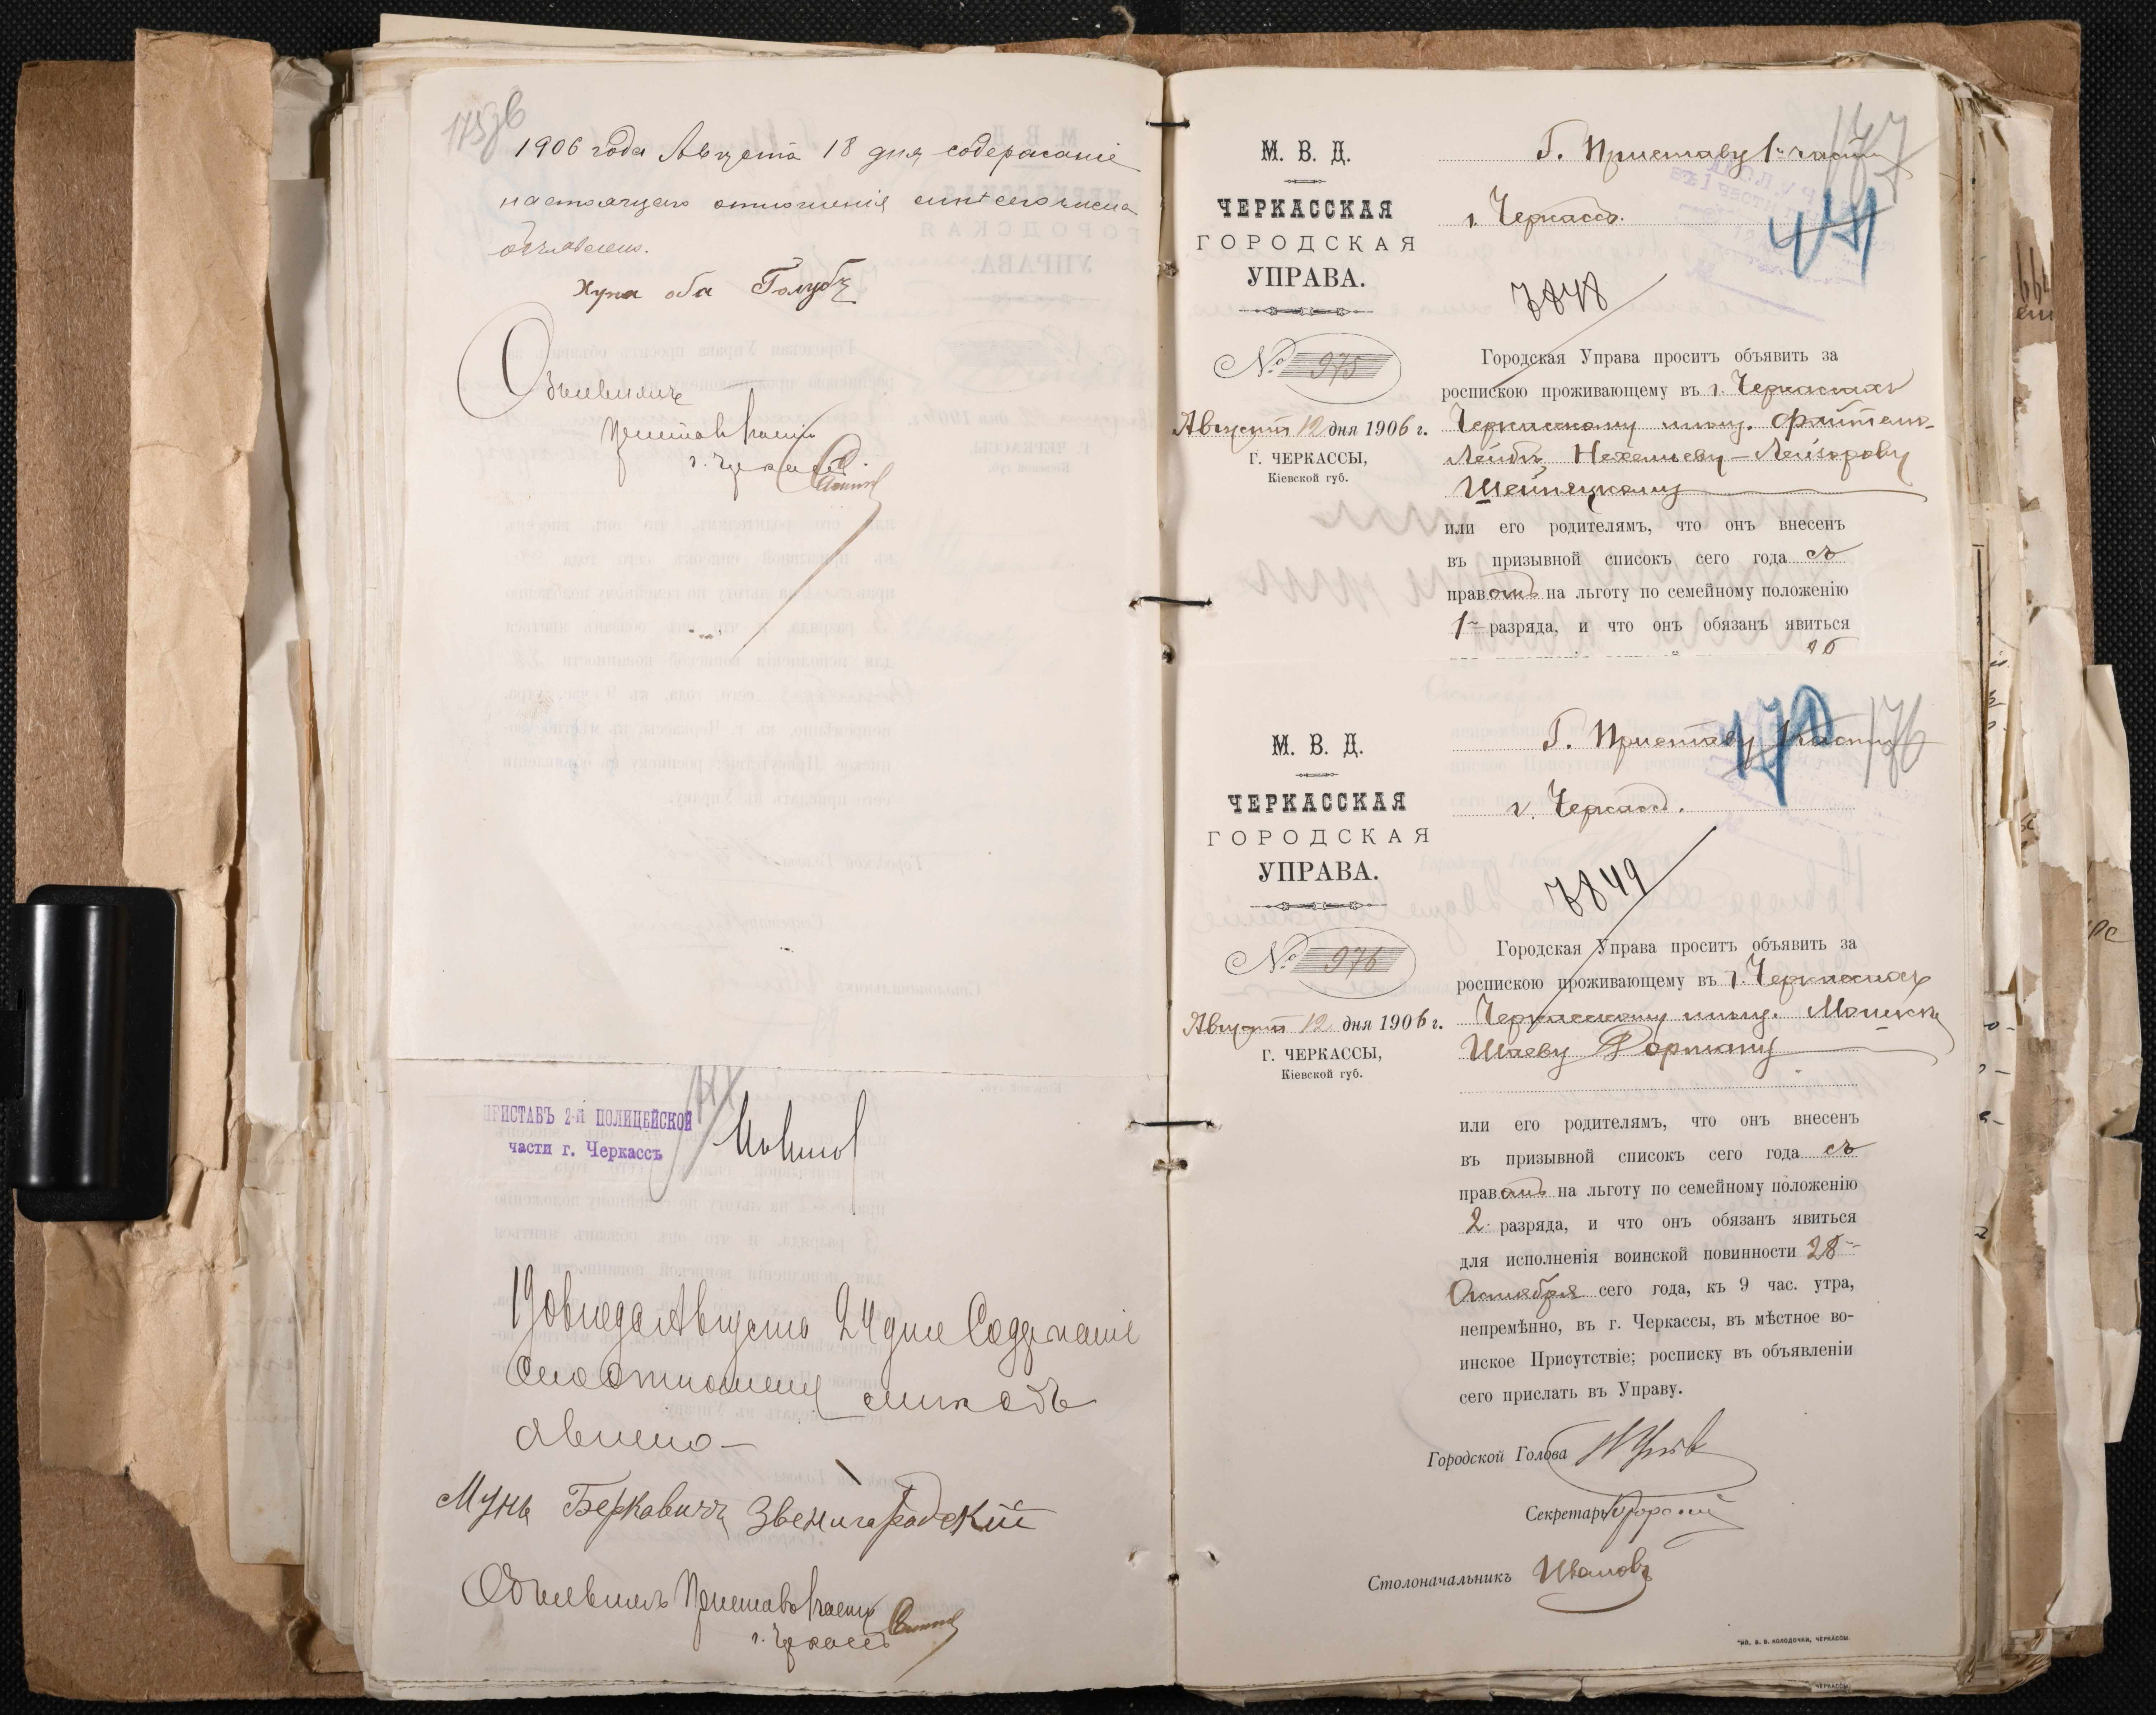 1906 года Августа 18 дня содержаніе
настоящаго отношенія мнѣ сего числа
объявлено.
Голубъ
Объявилъ
Приставъ 1 части
г. Черкассъ
ПРИСТАВЪ 2-й ПОЛИЦЕЙСКОЙ
части г. Черкассъ
1906 года Августа 24 дня Содержаніе
сего отношенія мнѣ объ
явлено
Мунь Беркавичъ Звенигарадскій
Объявилъ Приставъ 1 части
г. Черкассъ
177
М. В. Д.
ЧЕРКАССКАЯ
ГОРОДСКАЯ
УПРАВА.
№ 975
Августа 12 дня 1906 г.
Г. ЧЕРКАССЫ,
Кіевской губ.
Г. Приставу 1й части
г. Черкассъ.
7848
Городская Управа проситъ объявить за
роспискою проживающему въ г. Черкассахъ
Черкасскому мѣщ. Файтель-
Лейбѣ Нехемьеву-Лейзорову
или его родителямъ, что онъ внесенъ
въ призывной списокъ сего года съ
правомъ на льготу по семейному положенію
1го разряда, и что онъ обязанъ явиться
176
М. В. Д.
ЧЕРКАССКАЯ
ГОРОДСКАЯ
УПРАВА.
№ 976
Августа 12 дня 1906 г.
Г. ЧЕРКАССЫ,
Кіевской губ.
Г. Приставу 1 части
г. Черкассъ.
7849
Городская Управа проситъ объявить за
роспискою проживающему въ г. Черкассахъ
Черкасскому мѣщ. Мошкѣ
Шаеву Фортману
или его родителямъ, что онъ внесенъ
въ призывной списокъ сего года съ
правомъ на льготу по семейному положенію
2 разряда, и что онъ обязанъ явиться
для исполненія воинской повинности 28
Октября сего года, къ 9 час. утра,
непремѣнно, въ г. Черкассы, въ мѣстное во-
инское Присутствіе; росписку въ объявленіи
сего прислать въ Управу.
Городской Голова
Секретарь
Столоначальникъ Ивановъ
ТИП. В. В. КОЛОДОЧКИ, ЧЕРКАССЫ.
ЧЕРКАССЫ